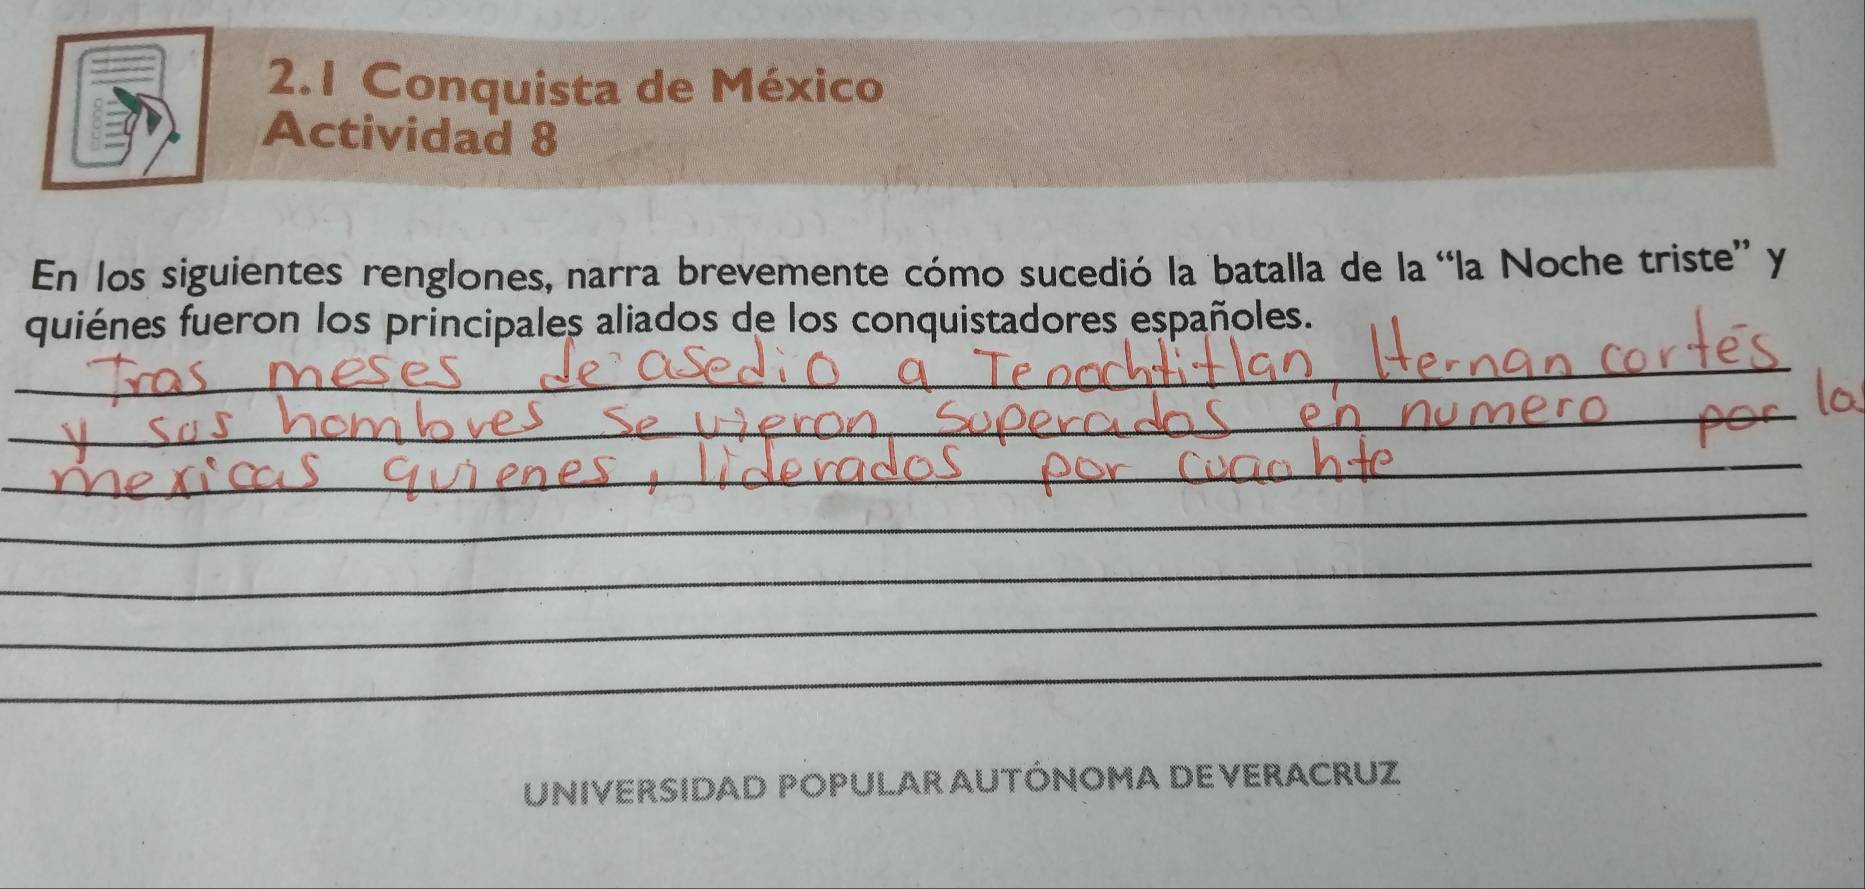 2.1 Conquista de México
Actividad 8
En los siguientes renglones, narra brevemente cómo sucedió la batalla de la “la Noche triste” y
quiénes fueron los principales aliados de los conquistadores españoles.
Tras meses de asedio a Tenochtitlan, Hernan cortés
y sus hombres se vieron superados en numero por los
mexicas quienes, liderados por cuachte
UNIVERSIDAD POPULAR AUTÓNOMA DE VERACRUZ